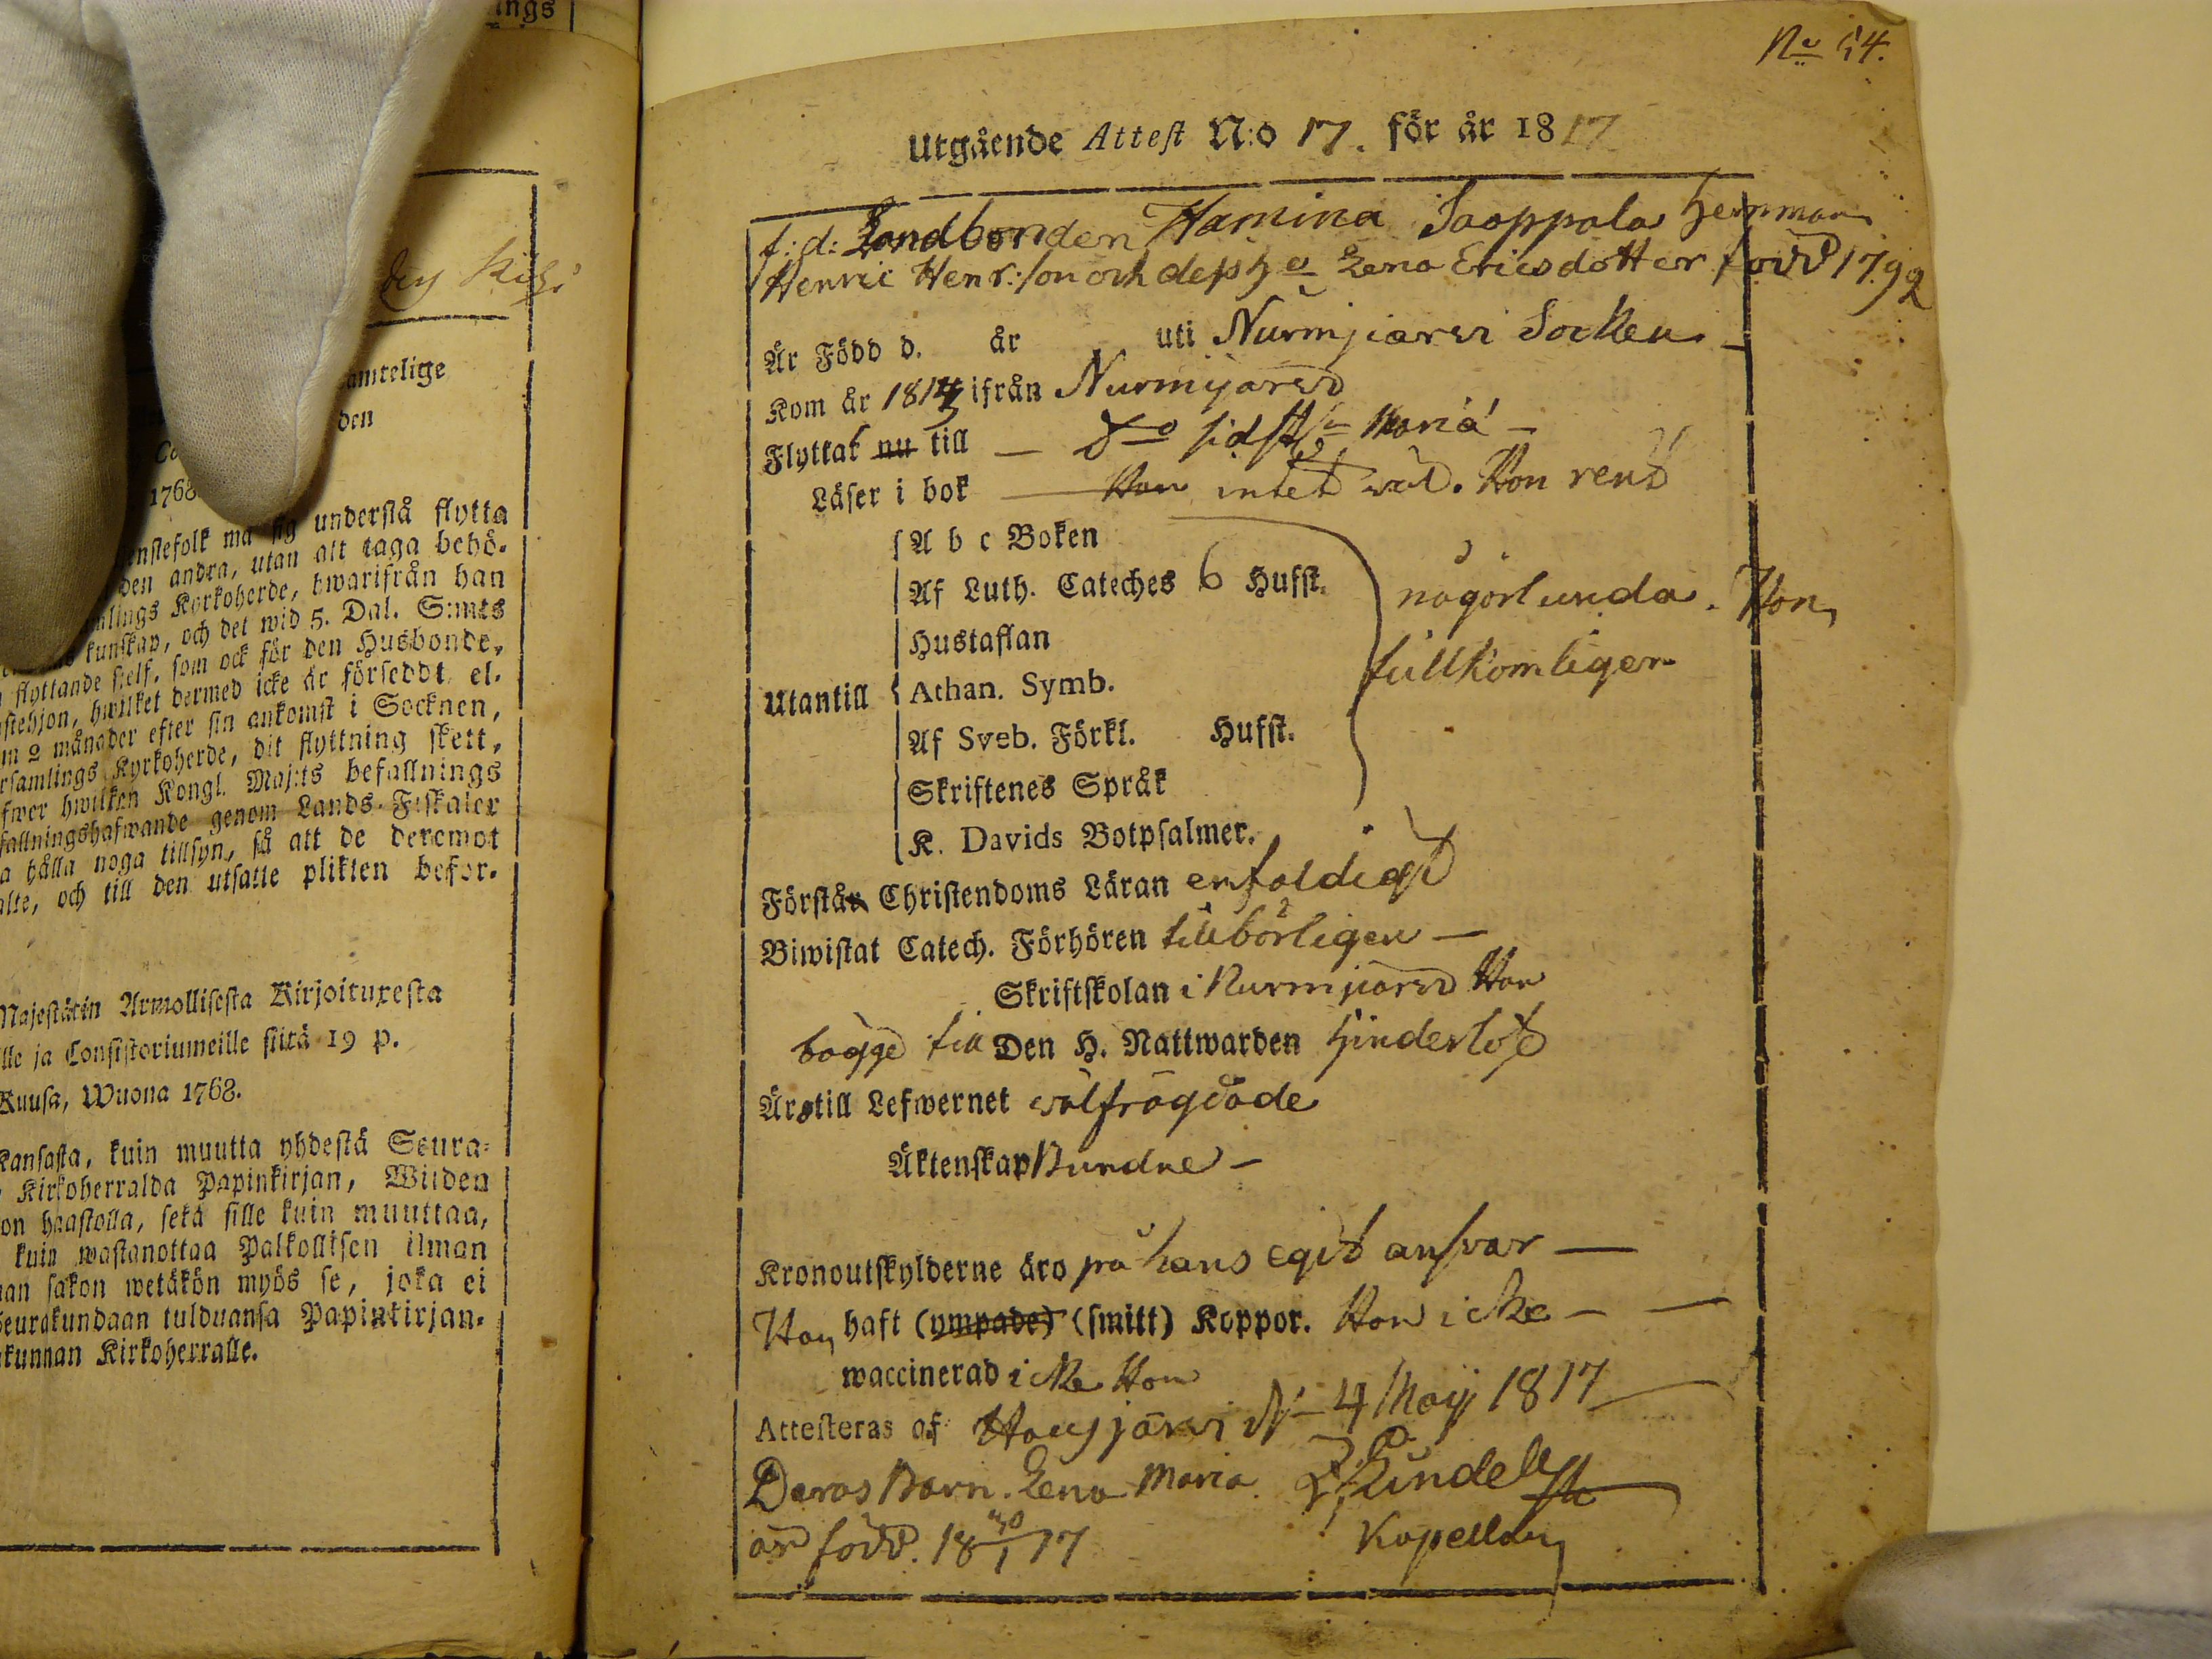 ings
den
amtelige
den
1768
enstefolk må sig understå flytta
den andra, utan att taga behö-
mlings Kyrkoherde, hwarifrån han
kunskap, och det wid 5. Dal. S:mts
flyttande sielf, som ock för den Husbonde,
stehjon, hwilket dermed icke är förseddt el-
m 2 månader efter sin ankomst i Socknen,
rsamlings Kyrkoherde, dit flyttning skett,
fwer hwilken Kongl. Maj:ts befallnings
fallningshafwande genom Lands-Fiskaler
a hålla noga tillsyn, så att de deremot
alte, och till den utsatte plikten befor-
Majestätin Armollisesta Kirjoituxesta
lle ja Consistoriumeille siitä 19 p.
Kuusa, Wuona 1768.
Kansasta, kuin muutta yhdestä Seura-
Kirkoherralda Papinkirjan, Wiiden
on haastolla, sekä sille kuin muuttaa,
kuin wastanottaa Palkollisen ilman
an sakon wetäkön myös se, joka ei
Seurakundaan tulduansa Papinkirjan-
kunnan Kirkoherralle.
No 54.
Utgående Attest N:o 17. för år 1817
f:d: Landbonden Hamina Saoppola Hemman
Henric Henr:son och dess H:o Lena Ericsdotter född 1792
Är Född d. år uti Nurmjärvi Socken
Kom år 1814 ifrån Nurmijärvi
Flyttat nu till — d:o sidst Mariä —
Läser i bok — Han intet väl. Hon rent
A b c Boken
Af Luth. Cateches 6 Hufst. någorlunda. Hon
Hustaflan
fullkomligen
Utantill Athan. Symb.
Af Sveb. Förkl. Hufst.
Skriftenes Språk
K. Davids Botpsalmer.
Förstår Christendoms Läran enfaldigt
Biwistat Catech. Förhören tillbörligen —
Skriftskolan i Nurmjärvi Hon
bägge till Den H. Nattwarden hinderlöse
Äro till Lefwernet välfrägdade
Äktenskap Bundne —
Kronoutskylderne äro på hans egit ansvar —
Han haft (ympade) (smitt) Koppor. Hon icke —
waccinerad icke Hon
Attesteras af Hausjärvi d. 4 Maij 1817
Deras Barn. Lena Maria
är född. 18 30/1 17
Kapellan